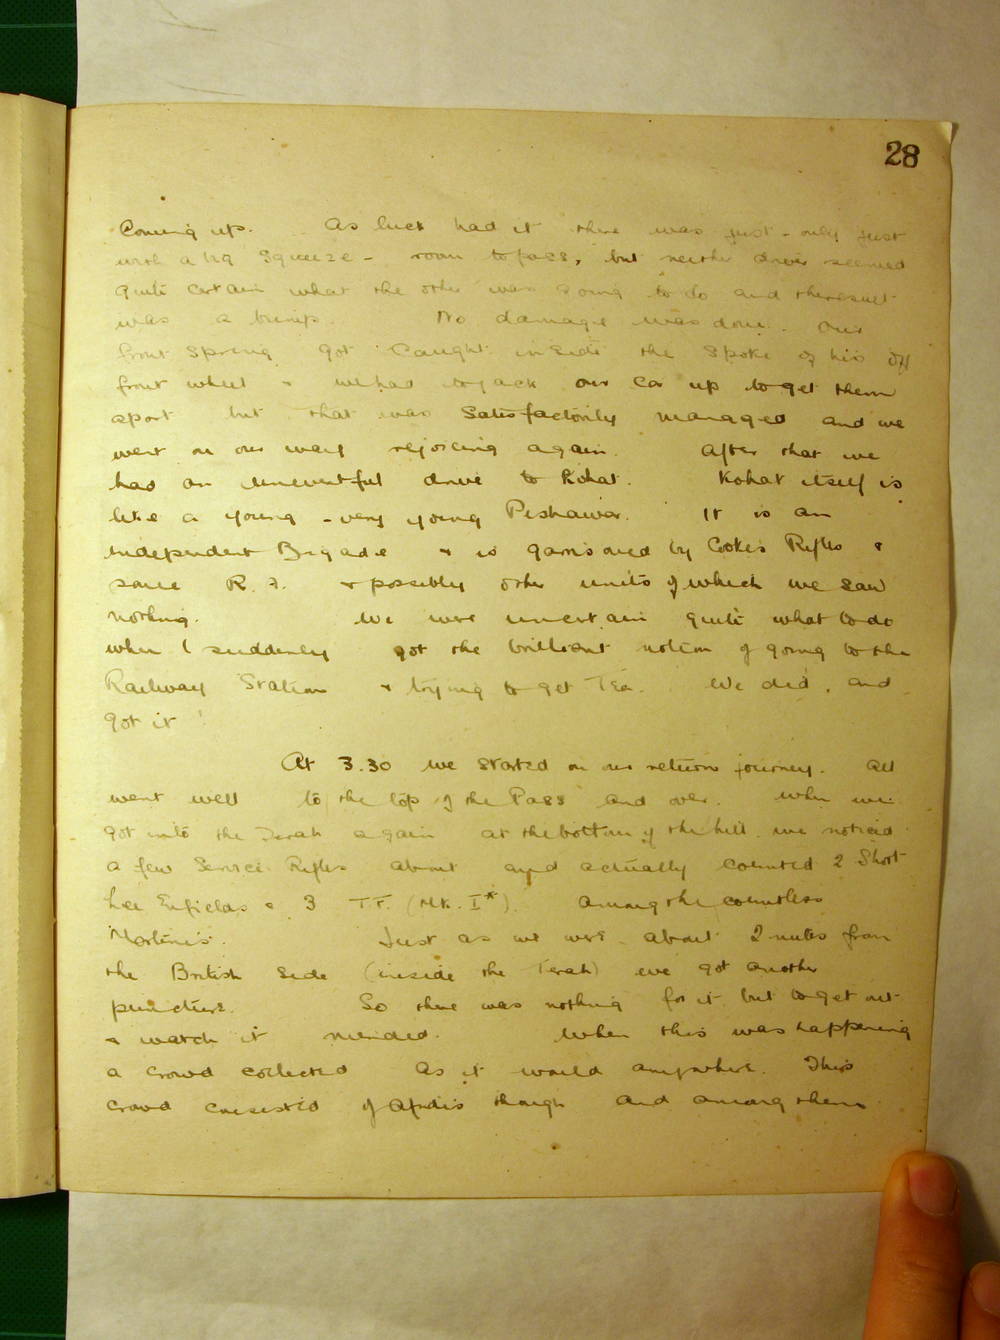 28
Coming up. As luck had it there was just - only just
with a big squeeze - room to pass, but neither driver seemed
quite certain what the other was going to do and the result
was a bump. No damage was done. Our
front spring got caught inside the spoke of his off
front wheel & we had to jack our car up to get them
apart but that was satisfactorily managed and we
went on our way rejoicing again. After that we
had an uneventful drive to Kohat. Kohat itself is
like a young - very young Peshawar. It is an
independent Brigade & is garrisoned by Cokes Rifles &
some R.F.A. & possibly other units of which we saw
nothing. We were uncertain quite what to do
when I suddenly got the brilliant notion of going to the
Railway Station & trying to get Tea. We did, and
got it!
At 3.30 we started on our return journey. All
went well to the top of the Pass and over. When we
got into the Terah again at the bottom of the hill we noticed
a few Service Rifles about and actually counted 2 Short
Lee Enfields & 3 T.F. (Mk. I*) among the countless
Martinis. Just as we were about 2 miles from
the British side (inside the Terah) we got another
puncture. So there was nothing for it but to get out
& watch it mended. When this was happening
a crowd collected as it would anywhere. This
crowd consisted of Afridis though and among them